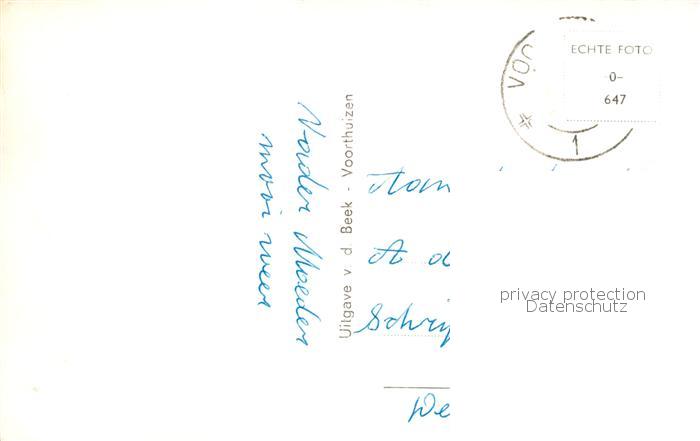 Vader Moeder
mooi weer
Uitgave v. d. Beek - Voorthuizen
VOO
1
ECHTE FOTO
-0-
647
Aan
A d
Schrij
We
privacy protection
Datenschutz